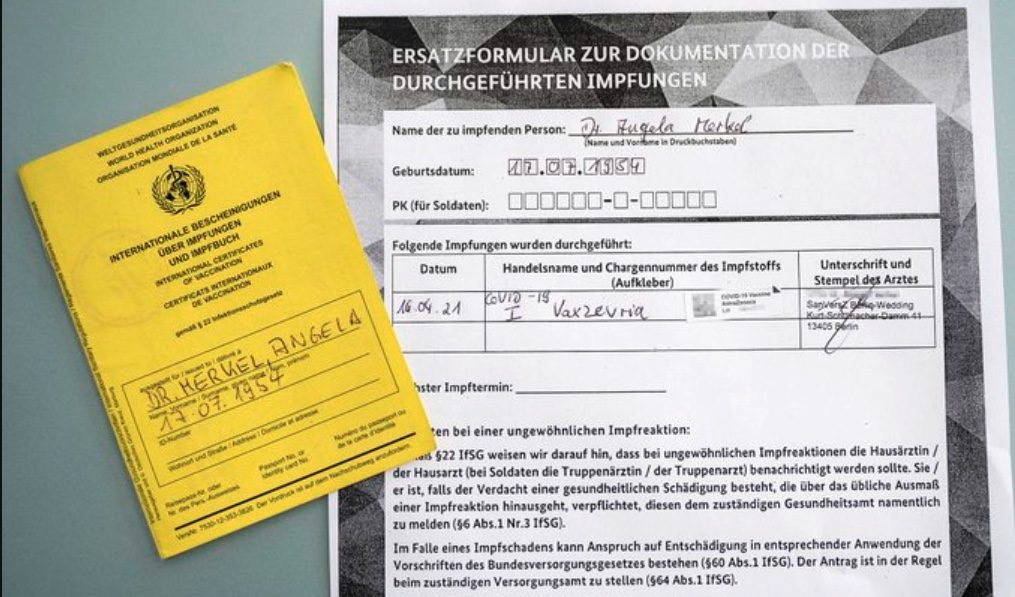 WELTGESUNDHEITSORGANISATION
WORLD HEALTH ORGANIZATION
ORGANISATION MONDIALE DE LA SANTÉ
INTERNATIONALE BESCHEINIGUNGEN
ÜBER IMPFUNGEN
UND IMPFBUCH
INTERNATIONAL CERTIFICATES
OF VACCINATION
CERTIFICATS INTERNATIONAUX
DE VACCINATION
gemäß § 22 Infektionsschutzgesetz
ausgestellt für / issued to / délivré à
DR. MERKEL, ANGELA
Name, Vorname / Surname, given name / Nom, prénom
17.07.1954
ID-Number
Wohnort und Straße / Address / Domicile et adresse
Passport No. or
Identity card No.
Numéro du passeport ou
de la carte d'identité
Reisepass-Nr. oder
Nr. des Pers.-Ausweises
VersNr. 7530-12-353-3626. Der Vordruck ist auf dem Nachschubweg anzufordern.
ERSATZFORMULAR ZUR DOKUMENTATION DER
DURCHGEFÜHRTEN IMPFUNGEN
Name der zu impfenden Person: Dr. Angela Merkel
(Name und Vorname in Druckbuchstaben)
Geburtsdatum: 17.07.1954
PK (für Soldaten): - -
Folgende Impfungen wurden durchgeführt:
Datum
Handelsname und Chargennummer des Impfstoffs
(Aufkleber)
Unterschrift und
Stempel des Arztes
16.04.21
COVID-19
I Vaxzevria
COVID-19 Vaccine
AstraZeneca
Lot
SanVersZ Berlin-Wedding
Kurt-Schumacher-Damm 41
13405 Berlin
hster Impftermin:
ten bei einer ungewöhnlichen Impfreaktion:
§22 IfSG weisen wir darauf hin, dass bei ungewöhnlichen Impfreaktionen die Hausärztin /
der Hausarzt (bei Soldaten die Truppenärztin / der Truppenarzt) benachrichtigt werden sollte. Sie /
er ist, falls der Verdacht einer gesundheitlichen Schädigung besteht, die über das übliche Ausmaß
einer Impfreaktion hinausgeht, verpflichtet, diesen dem zuständigen Gesundheitsamt namentlich
zu melden (§6 Abs.1 Nr.3 IfSG).
Im Falle eines Impfschadens kann Anspruch auf Entschädigung in entsprechender Anwendung der
Vorschriften des Bundesversorgungsgesetzes bestehen (§60 Abs.1 IfSG). Der Antrag ist in der Regel
beim zuständigen Versorgungsamt zu stellen (§64 Abs.1 IfSG).